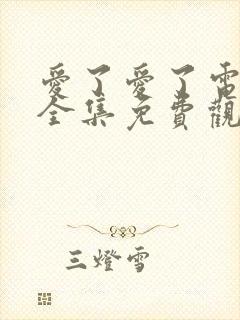 愛了愛了電
全集免費觀
三燈雪